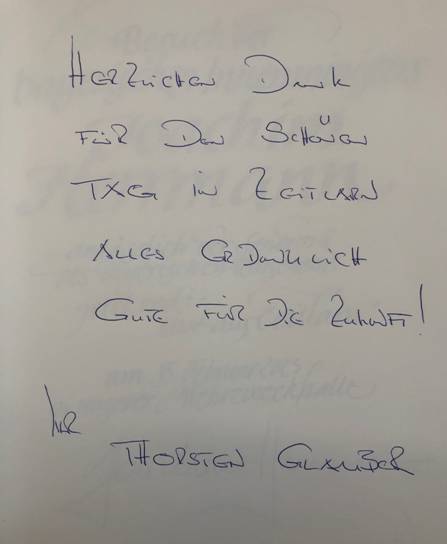 HERZLICHEN DANK
FÜR DEN SCHÖNEN
TAG IN ZEITLARN
ALLES GEDANKLICH
GUTE FÜR DIE ZUKUNFT!
IHR
THORSTEN GLAUBER